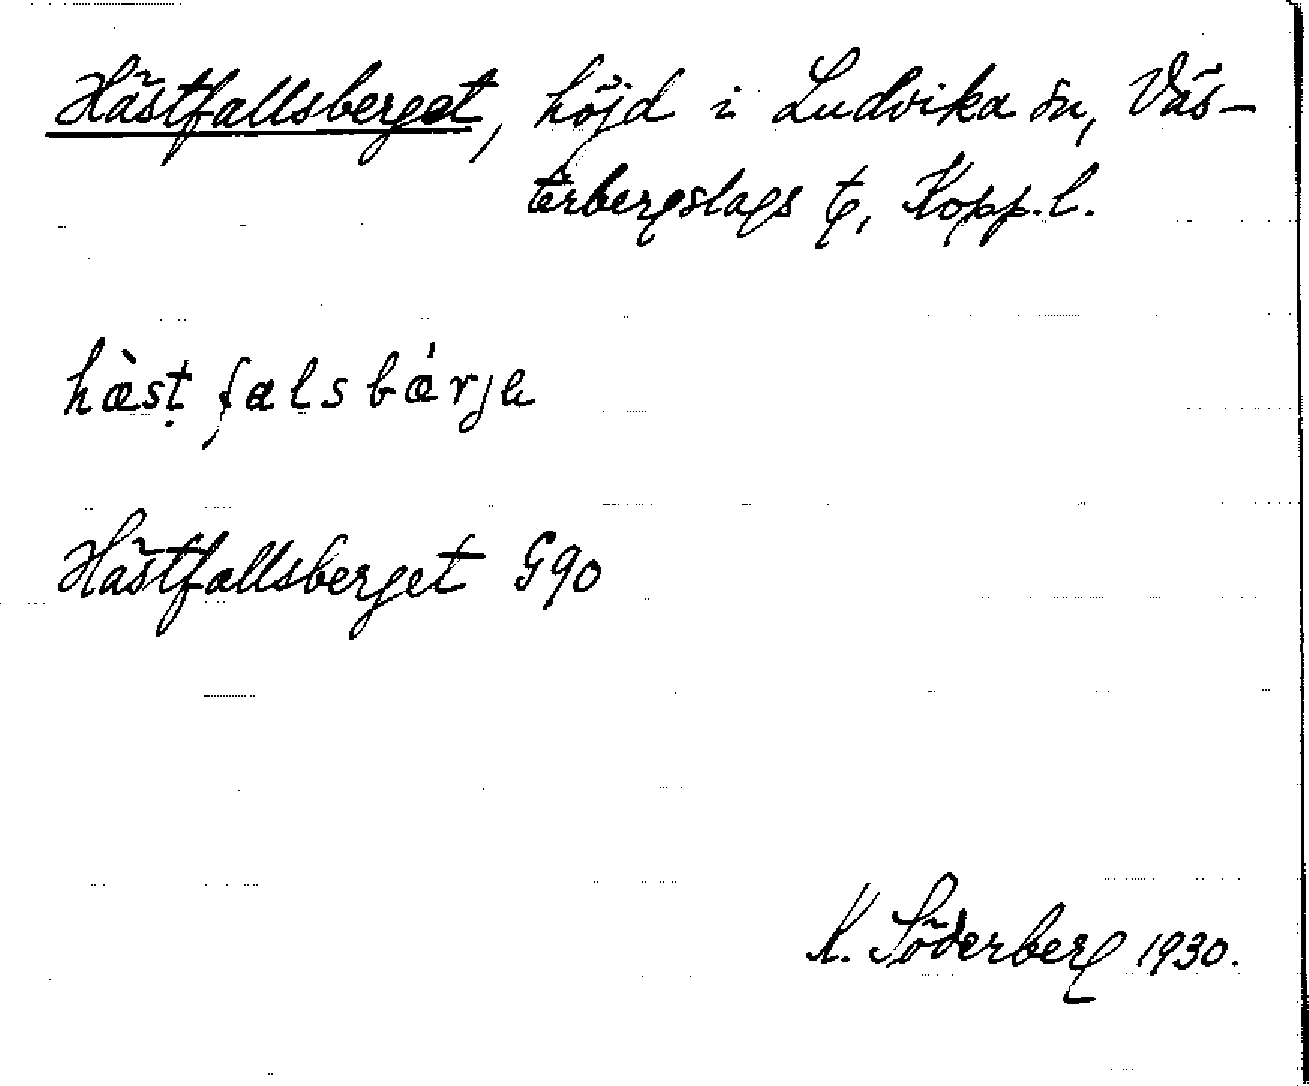 Hästfallsberget, höjd i Ludvika sn, Väs-
terbergslags t, Kopp.l.
hæ̀st falsbǽrje
Hästfallsberget G90
K. Söderberg 1930.